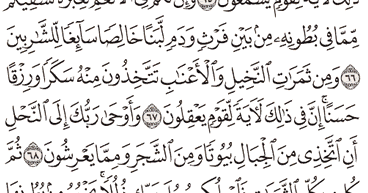 ذَٰلِكَ لَآيَةً لِّقَوْمٍ يَسْمَعُونَ ٦٥ وَإِنَّ لَكُمْ فِي الْأَنْعَامِ لَعِبْرَةً نُّسْقِيكُم
مِّمَّا فِي بُطُونِهِ مِن بَيْنِ فَرْثٍ وَدَمٍ لَّبَنًا خَالِصًا سَآئِغًا لِّلشَّارِبِينَ
٦٦ وَمِن ثَمَرَاتِ النَّخِيلِ وَالْأَعْنَابِ تَتَّخِذُونَ مِنْهُ سَكَرًا وَرِزْقًا
حَسَنًا إِنَّ فِي ذَٰلِكَ لَآيَةً لِّقَوْمٍ يَعْقِلُونَ ٦٧ وَأَوْحَىٰ رَبُّكَ إِلَى النَّحْلِ
أَنِ اتَّخِذِي مِنَ الْجِبَالِ بُيُوتًا وَمِنَ الشَّجَرِ وَمِمَّا يَعْرِشُونَ ٦٨ ثُمَّ